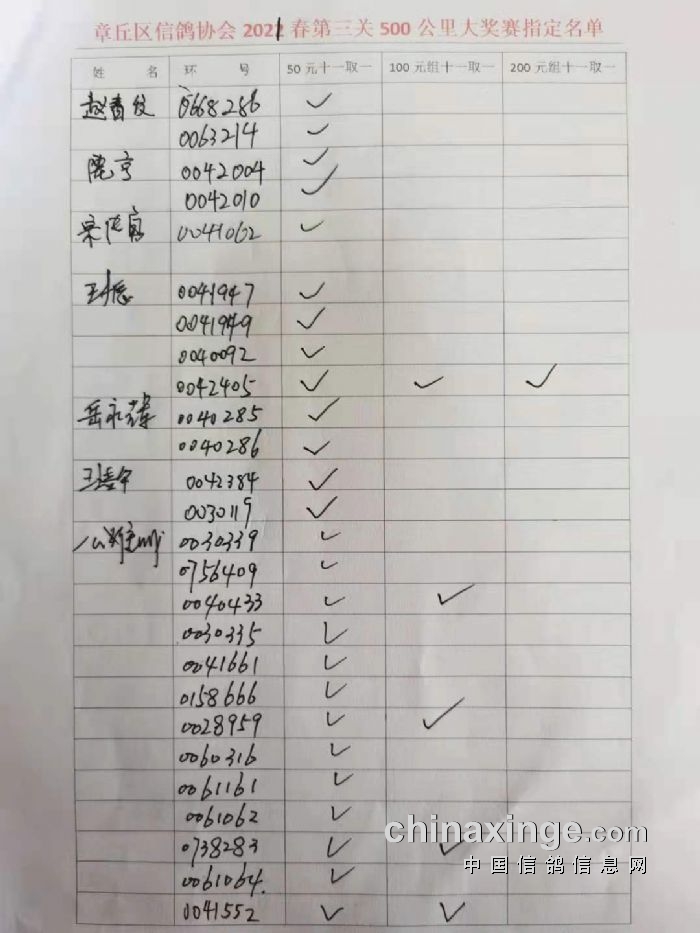 章丘区信鸽协会 2021 春第三关 500 公里大奖赛指定名单
姓 名 环 号 50 元十一取一 100 元组十一取一 200 元组十一取一
0668286 ✓
0063214 ✓
0042004 ✓
0042010 ✓
0041062 ✓
0041947 ✓
0041949 ✓
0040092 ✓
0042405 ✓ ✓ ✓
岳永 0040285 ✓
0040286 ✓
王 0042384 ✓
0030119 ✓
0030339 ✓
0756409 ✓
0040433 ✓ ✓
0030335 ✓
0041661 ✓
0158666 ✓
0028959 ✓ ✓
0060316 ✓
0061161 ✓
0061062 ✓
0738283 ✓ ✓
0061064. ✓
0041552 ✓ ✓
chinaxinge.com
中国信鸽信息网